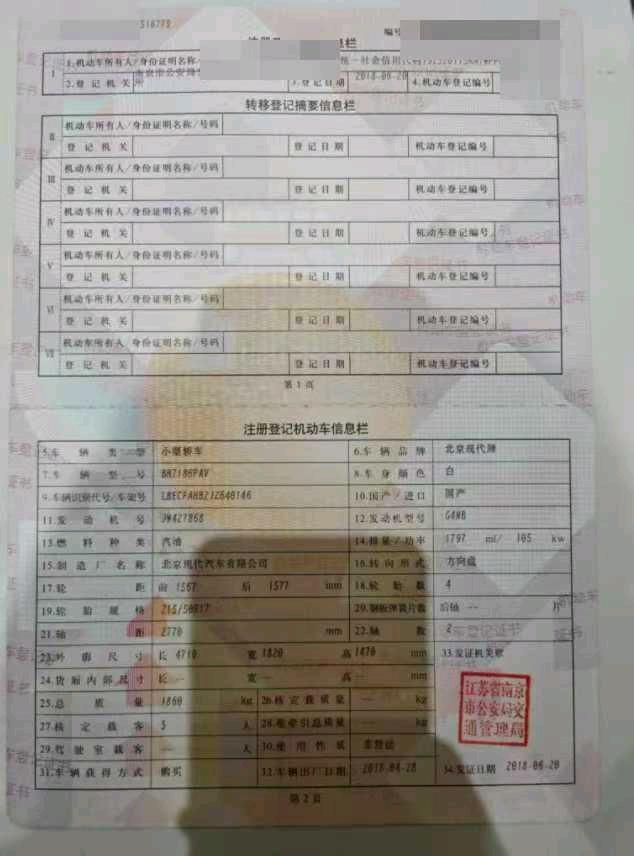 编号
息栏
I 1.机动车所有人/身份证明名称/
统一社会信用代码
2.登记机关
3.登记日期 2018-06-20 4.机动车登记编号
转移登记摘要信息栏
II 机动车所有人/身份证明名称/号码
登记机关 登记日期 机动车登记编号
III 机动车所有人/身份证明名称/号码
登记机关 登记日期 机动车登记编号
IV 机动车所有人/身份证明名称/号码
登记机关 登记日期 机动车登记编号
V 机动车所有人/身份证明名称/号码
登记机关 登记日期 机动车登记编号
VI 机动车所有人/身份证明名称/号码
登记机关 登记日期 机动车登记编号
VII 机动车所有人/身份证明名称/号码
登记机关 登记日期 机动车登记编号
第1页
注册登记机动车信息栏
5.车辆类型 小型轿车 6.车辆品牌 北京现代牌
7.车辆型号 BH7186PAV 8.车身颜色 白
9.车辆识别代号/车架号 10.国产/进口 国产
11.发动机号 JW427868 12.发动机型号 G4NB
13.燃料种类 汽油 14.排量/功率 1797 ml/ 105 kw
15.制造厂名称 北京现代汽车有限公司 16.转向形式 方向盘
17.轮距 前 1567 后 1577 mm 18.轮胎数 4
19.轮胎规格 215/50R17 20.钢板弹簧片数 后轴 -- 片
21.轴距 2770 mm 22.轴数 2
23.外廓尺寸 长 4710 宽 1820 高 1470 mm 33.发证机关章
24.货厢内部尺寸 长 -- 宽 -- 高 -- mm
25.总质量 1860 kg 26.核定载质量 -- kg
27.核定载客 5 人 28.准牵引总质量 -- kg
29.驾驶室载客 -- 人 30.使用性质 非营运
31.车辆获得方式 购买 32.车辆出厂日期 2018-04-28 34.发证日期 2018-06-20
江苏省南京
市公安局交
通管理局
第2页